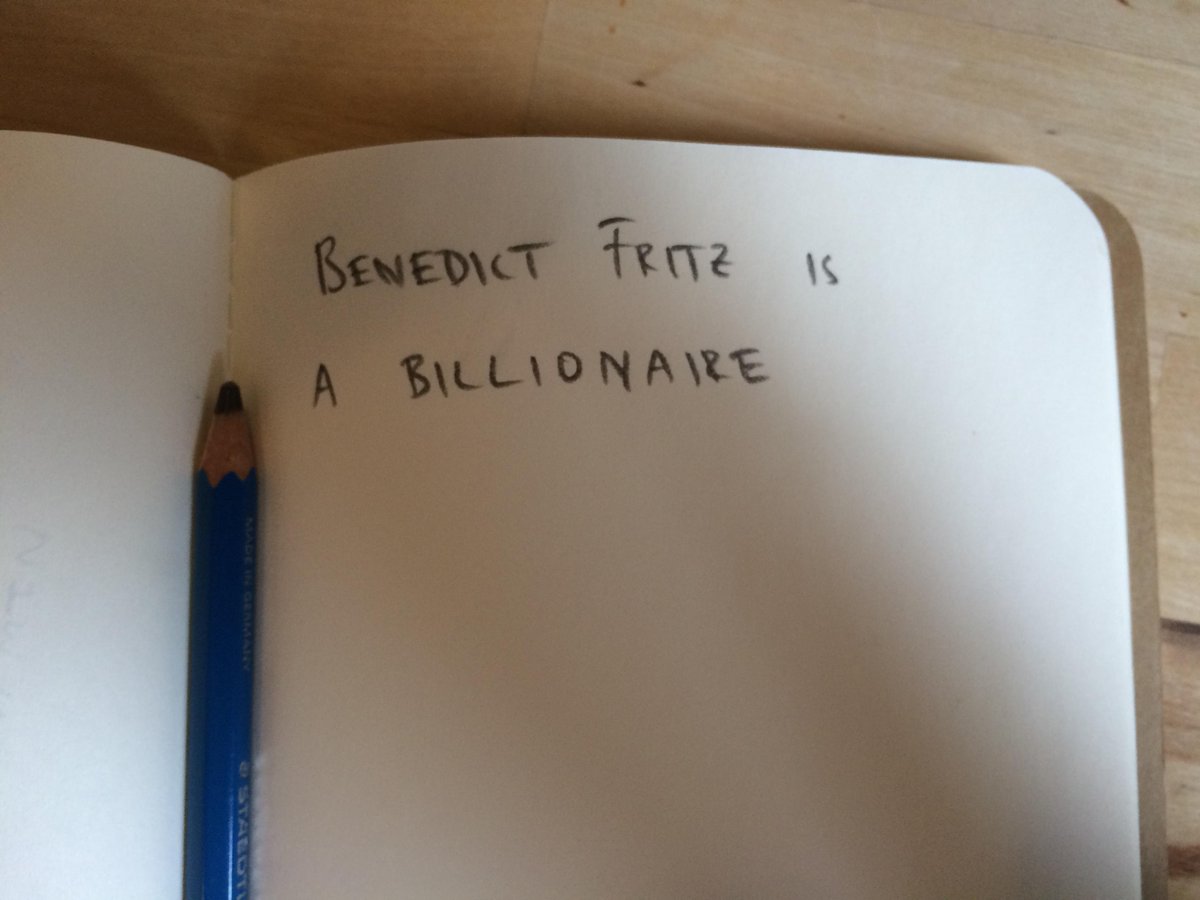 BENEDICT FRITZ IS
A BILLIONAIRE
MADE IN GERMANY